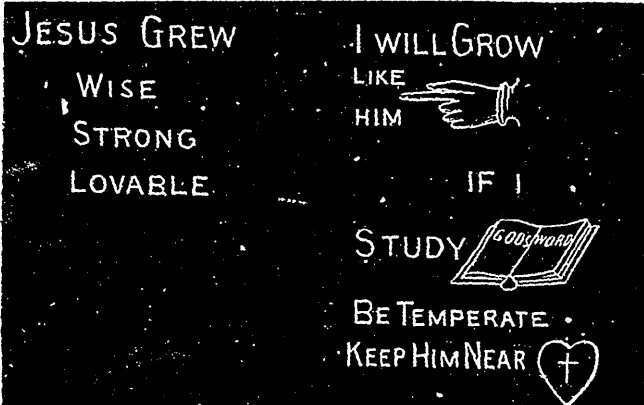 JESUS GREW
WISE
STRONG
LOVABLE
I WILL GROW
LIKE
HIM
IF I
STUDY
GOD'S WORD
BE TEMPERATE
KEEP HIM NEAR